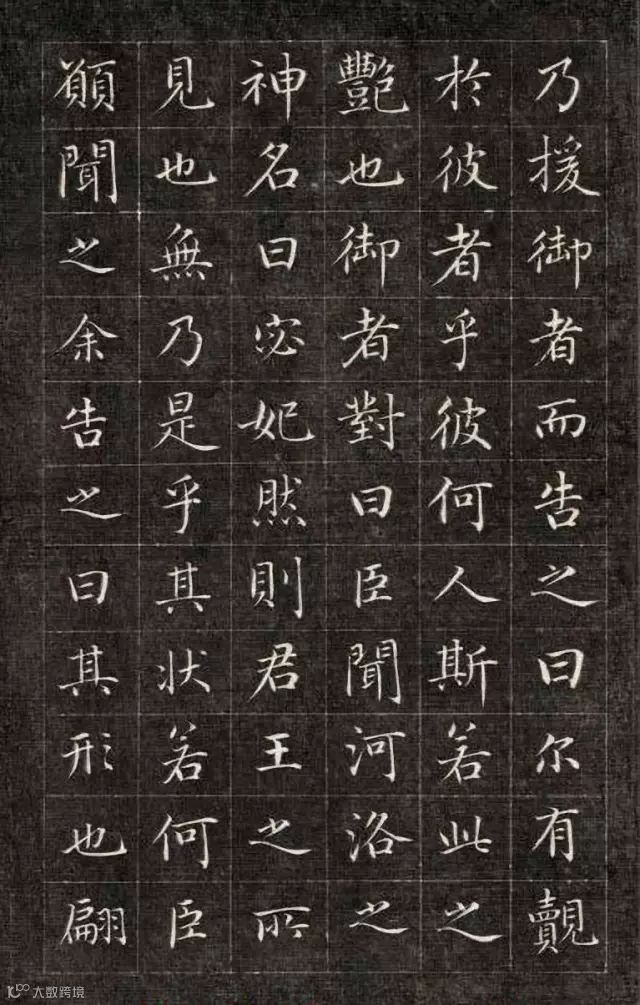 乃援御者而告之曰尔有覿
於彼者乎彼何人斯若此之
豔也御者對曰臣聞河洛之
神名曰宓妃然則君王之所
見也無乃是乎其状若何臣
願聞之余告之曰其形也翩
大数跨境